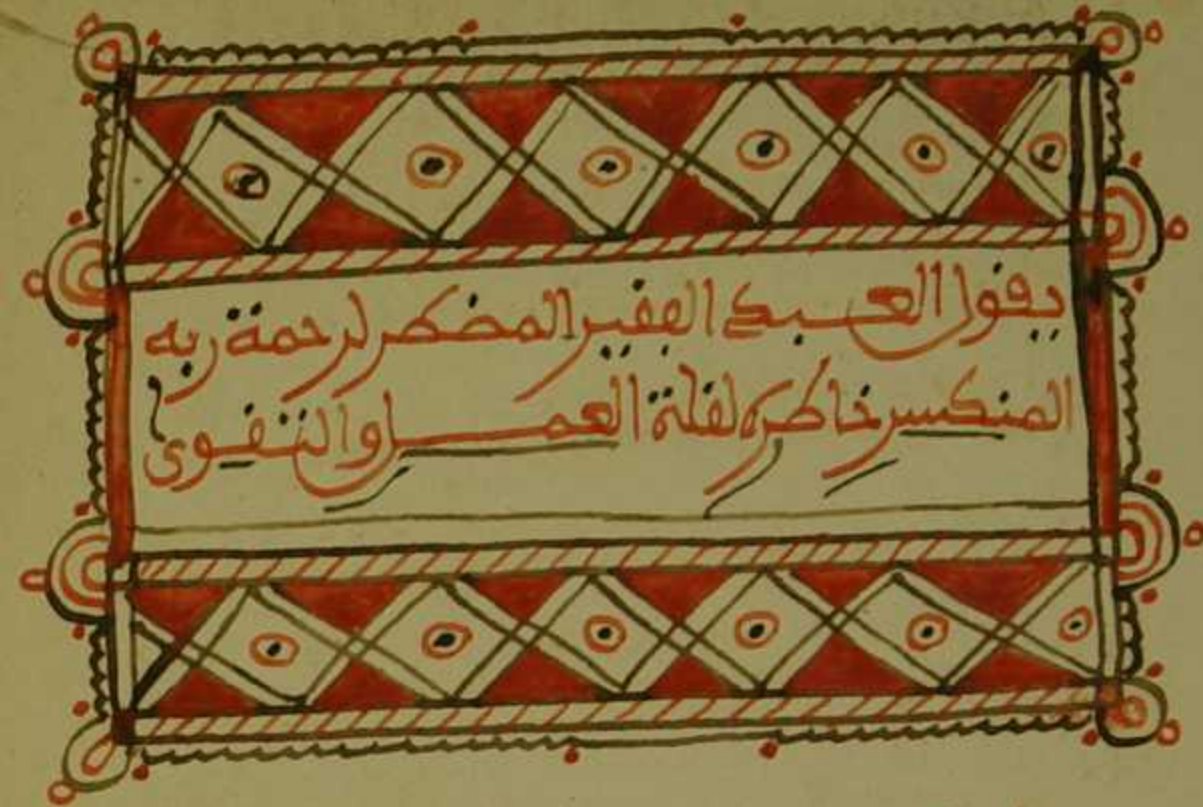 يقول العبد الفقير المضطر لرحمة ربه
المنكسر خاطره لقلة العمل والتقوى